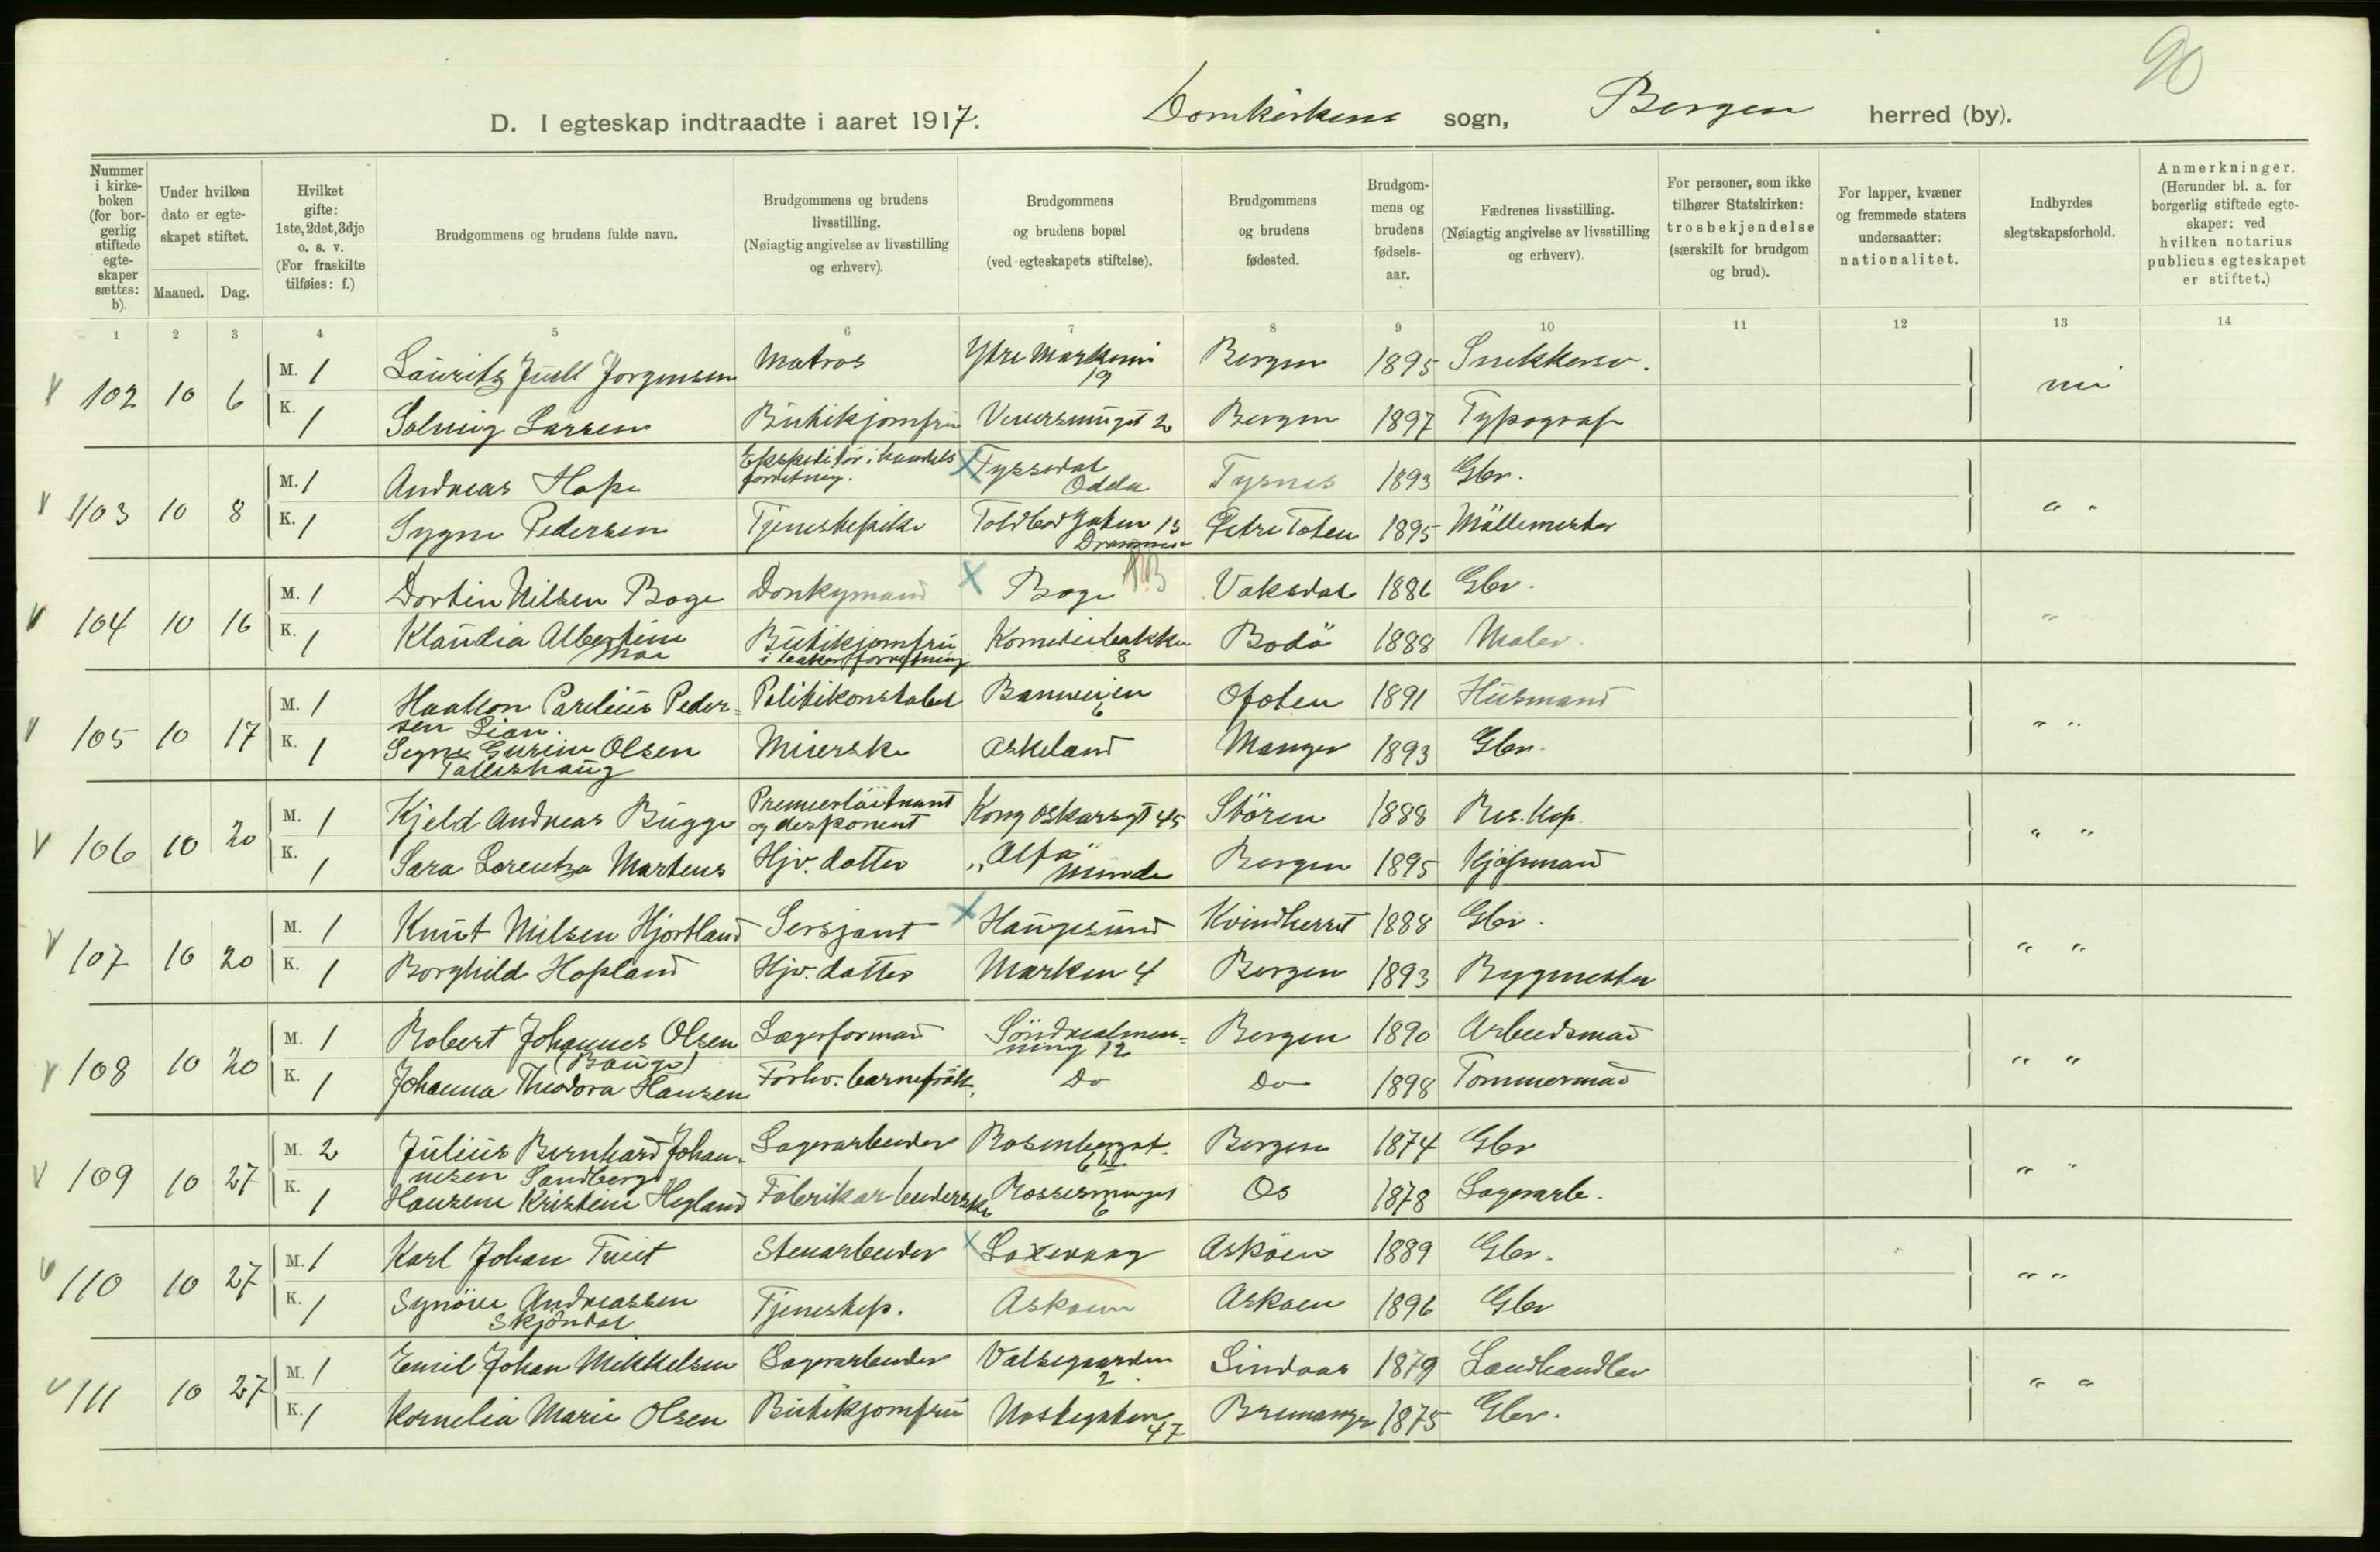 90
D. I egteskap indtraadte i aaret 1917. Domkirkens sogn, Bergen herred (by).
Nummer i kirke-boken (for bor-gerlig stiftede egte-skaper sættes: b).
Under hvilken dato er egte-skapet stiftet.
Maaned. Dag.
Hvilket gifte: 1ste, 2det, 3dje o. s. v. (For fraskilte tilføies: f.)
Brudgommens og brudens fulde navn.
Brudgommens og brudens livsstilling. (Nøiagtig angivelse av livsstilling og erhverv).
Brudgommens og brudens bopæl (ved egteskapets stiftelse).
Brudgommens og brudens fødested.
Brudgom-mens og brudens fødsels-aar.
Fædrenes livsstilling. (Nøiagtig angivelse av livsstilling og erhverv).
For personer, som ikke tilhører Statskirken: trosbekjendelse (særskilt for brudgom og brud).
For lapper, kvæner og fremmede staters undersaatter: nationalitet.
Indbyrdes slegtskapsforhold.
Anmerkninger. (Herunder bl. a. for borgerlig stiftede egte-skaper: ved hvilken notarius publicus egteskapet er stiftet.)
1 2 3 4 5 6 7 8 9 10 11 12 13 14
102 10 6 M. 1 Lauritz Juell Jorgensen Matros Ytre Markevei 19 Bergen 1895 Snekkersv. nei
K. 1 Solveig Larsen Butikjomfru Veversmuget 2 Bergen 1897 Typograf
103 10 8 M. 1 Andreas Hope Ekspeditör i handels forretning. Tyssedal Odda Tysnes 1893 Gbr. " "
K. 1 Sygne Pedersen Tjenestepike Toldbodgaten 13 Drammen Östre Toten 1895 Möllemester
104 10 16 M. 1 Dortin Nilsen Boge Donkymand Boge Vaksdal 1886 Gbr. "
K. 1 Klaudia Albertine Moe Butikjomfru i bakerforretning Komediebakken 8 Bodö 1888 Maler
105 10 17 M. 1 Haakon Parelius Peder-sen Lian. Politikonstabel Banneveien 6 Ofoten 1891 Husmand " "
K. 1 Signe Gurine Olsen Tolleshaug Meierske Askeland Manger 1893 Gbr.
106 10 20 M. 1 Kjeld Andreas Bugge Premierlöitnant og disponent Kong Oskarsgt 45 Stören 1888 Res. Kap. " "
K. 1 Sara Lorentza Martens Hjv. datter "Alfa" Minde Bergen 1895 Kjöpmand
107 10 20 M. 1 Knut Nilsen Hjortland Sersjant Haugesund Kvindherret 1888 Gbr. " "
K. 1 Borghild Hopland Hjv. datter Marken 4 Bergen 1893 Bygmester
108 10 20 M. 1 Robert Johannes Olsen (Bauge) Lagerformand Söndrealmen-ning 12 Bergen 1890 Arbeidsmand " "
K. 1 Johanna Theodora Hansen Forhv. barnefrök. Do Do 1898 Tømmermand
109 10 27 M. 2 Julius Bernhard Johan-nesen Sandberg Lagerarbeider Rosenberggt. Bergen 1874 Gbr " "
K. 1 Hansine Kristine Hegland Fabrikarbeiderske Rossesmuget 6 Os 1878 Lagerarb.
110 10 27 M. 1 Karl Johan Tveit Stenarbeider Laxevaag Asköen 1889 Gbr. " "
K. 1 Synöve Andreassen Skjöndal Tjenestep. Asköen Asköen 1896 Gbr
111 10 27 M. 1 Emil Johan Mikkelsen Lagerarbeider Valsegaarden 2 Lindaas 1879 Landhandler " "
K. 1 Kornelia Marie Olsen Butikjomfru Nostegaten 47 Bremanger 1875 Gbr.